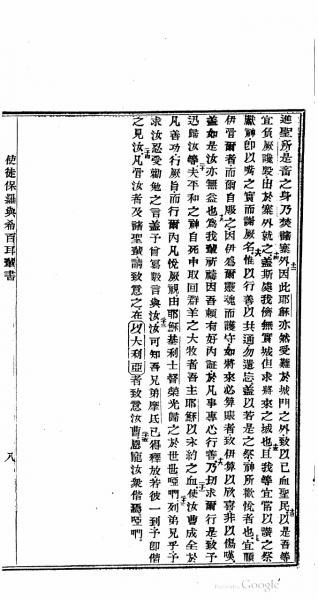 進聖所是畜之身乃焚諸寨外因此耶穌亦然受難於城門之外致以已血聖民以是吾等
宜負厥譏毀出於寨外就之蓋斯處我儕無實城但求將來之城也且我等宜常以讚之祭
獻神即以嘴之實而謝厥名惟以行善以共通勿遺忘蓋以若是之祭神所歡悅者也宜順
伊督爾者而爾自服之因伊爲爾靈魂而護守如將來必算賬者致伊算以欣喜非以傷嘆
蓋如是汝亦無益也爲我輩祈禱因吾頼有好內証於凡事專心行善乃切求爾行是致予
迅歸汝等夫平和之神自死中取回群羊之大牧者吾主耶穌以永約之血使汝曹成全於
凡善功行厥旨而行爾內凡悅厥視由耶穌基利士督榮光歸之於世世啞們列弟兄乎予
求汝忍受勸勉之言蓋予曾寫數言與汝汝可知吾兄弟摩氏已得釋放若彼一到予即偕
之見汝凡督汝者及諸聖輩請致意之在以大利亞者致意汝曹恩寵汝衆偕焉啞們
使徒保羅與希百耳輩書
八
Google